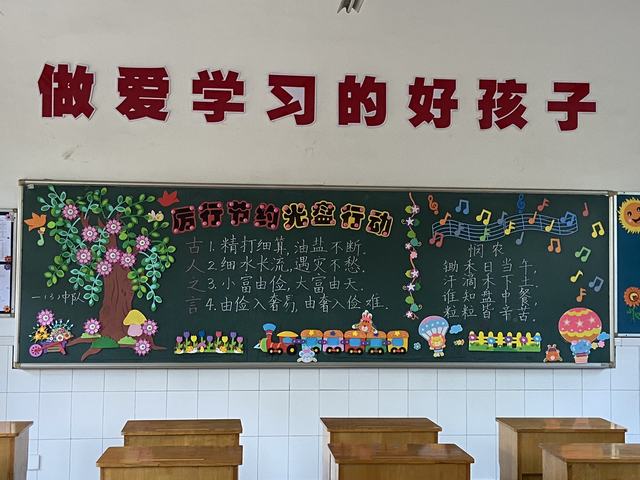 做爱学习的好孩子
厉行节约光盘行动
古 1.精打细算,油盐不断.
人 2.细水长流,遇灾不愁.
之 3.小富由俭,大富由天.
言 4.由俭入奢易,由奢入俭难.
一(3)中队
悯农
锄禾日当午,
汗滴禾下土.
谁知盘中餐,
粒粒皆辛苦.